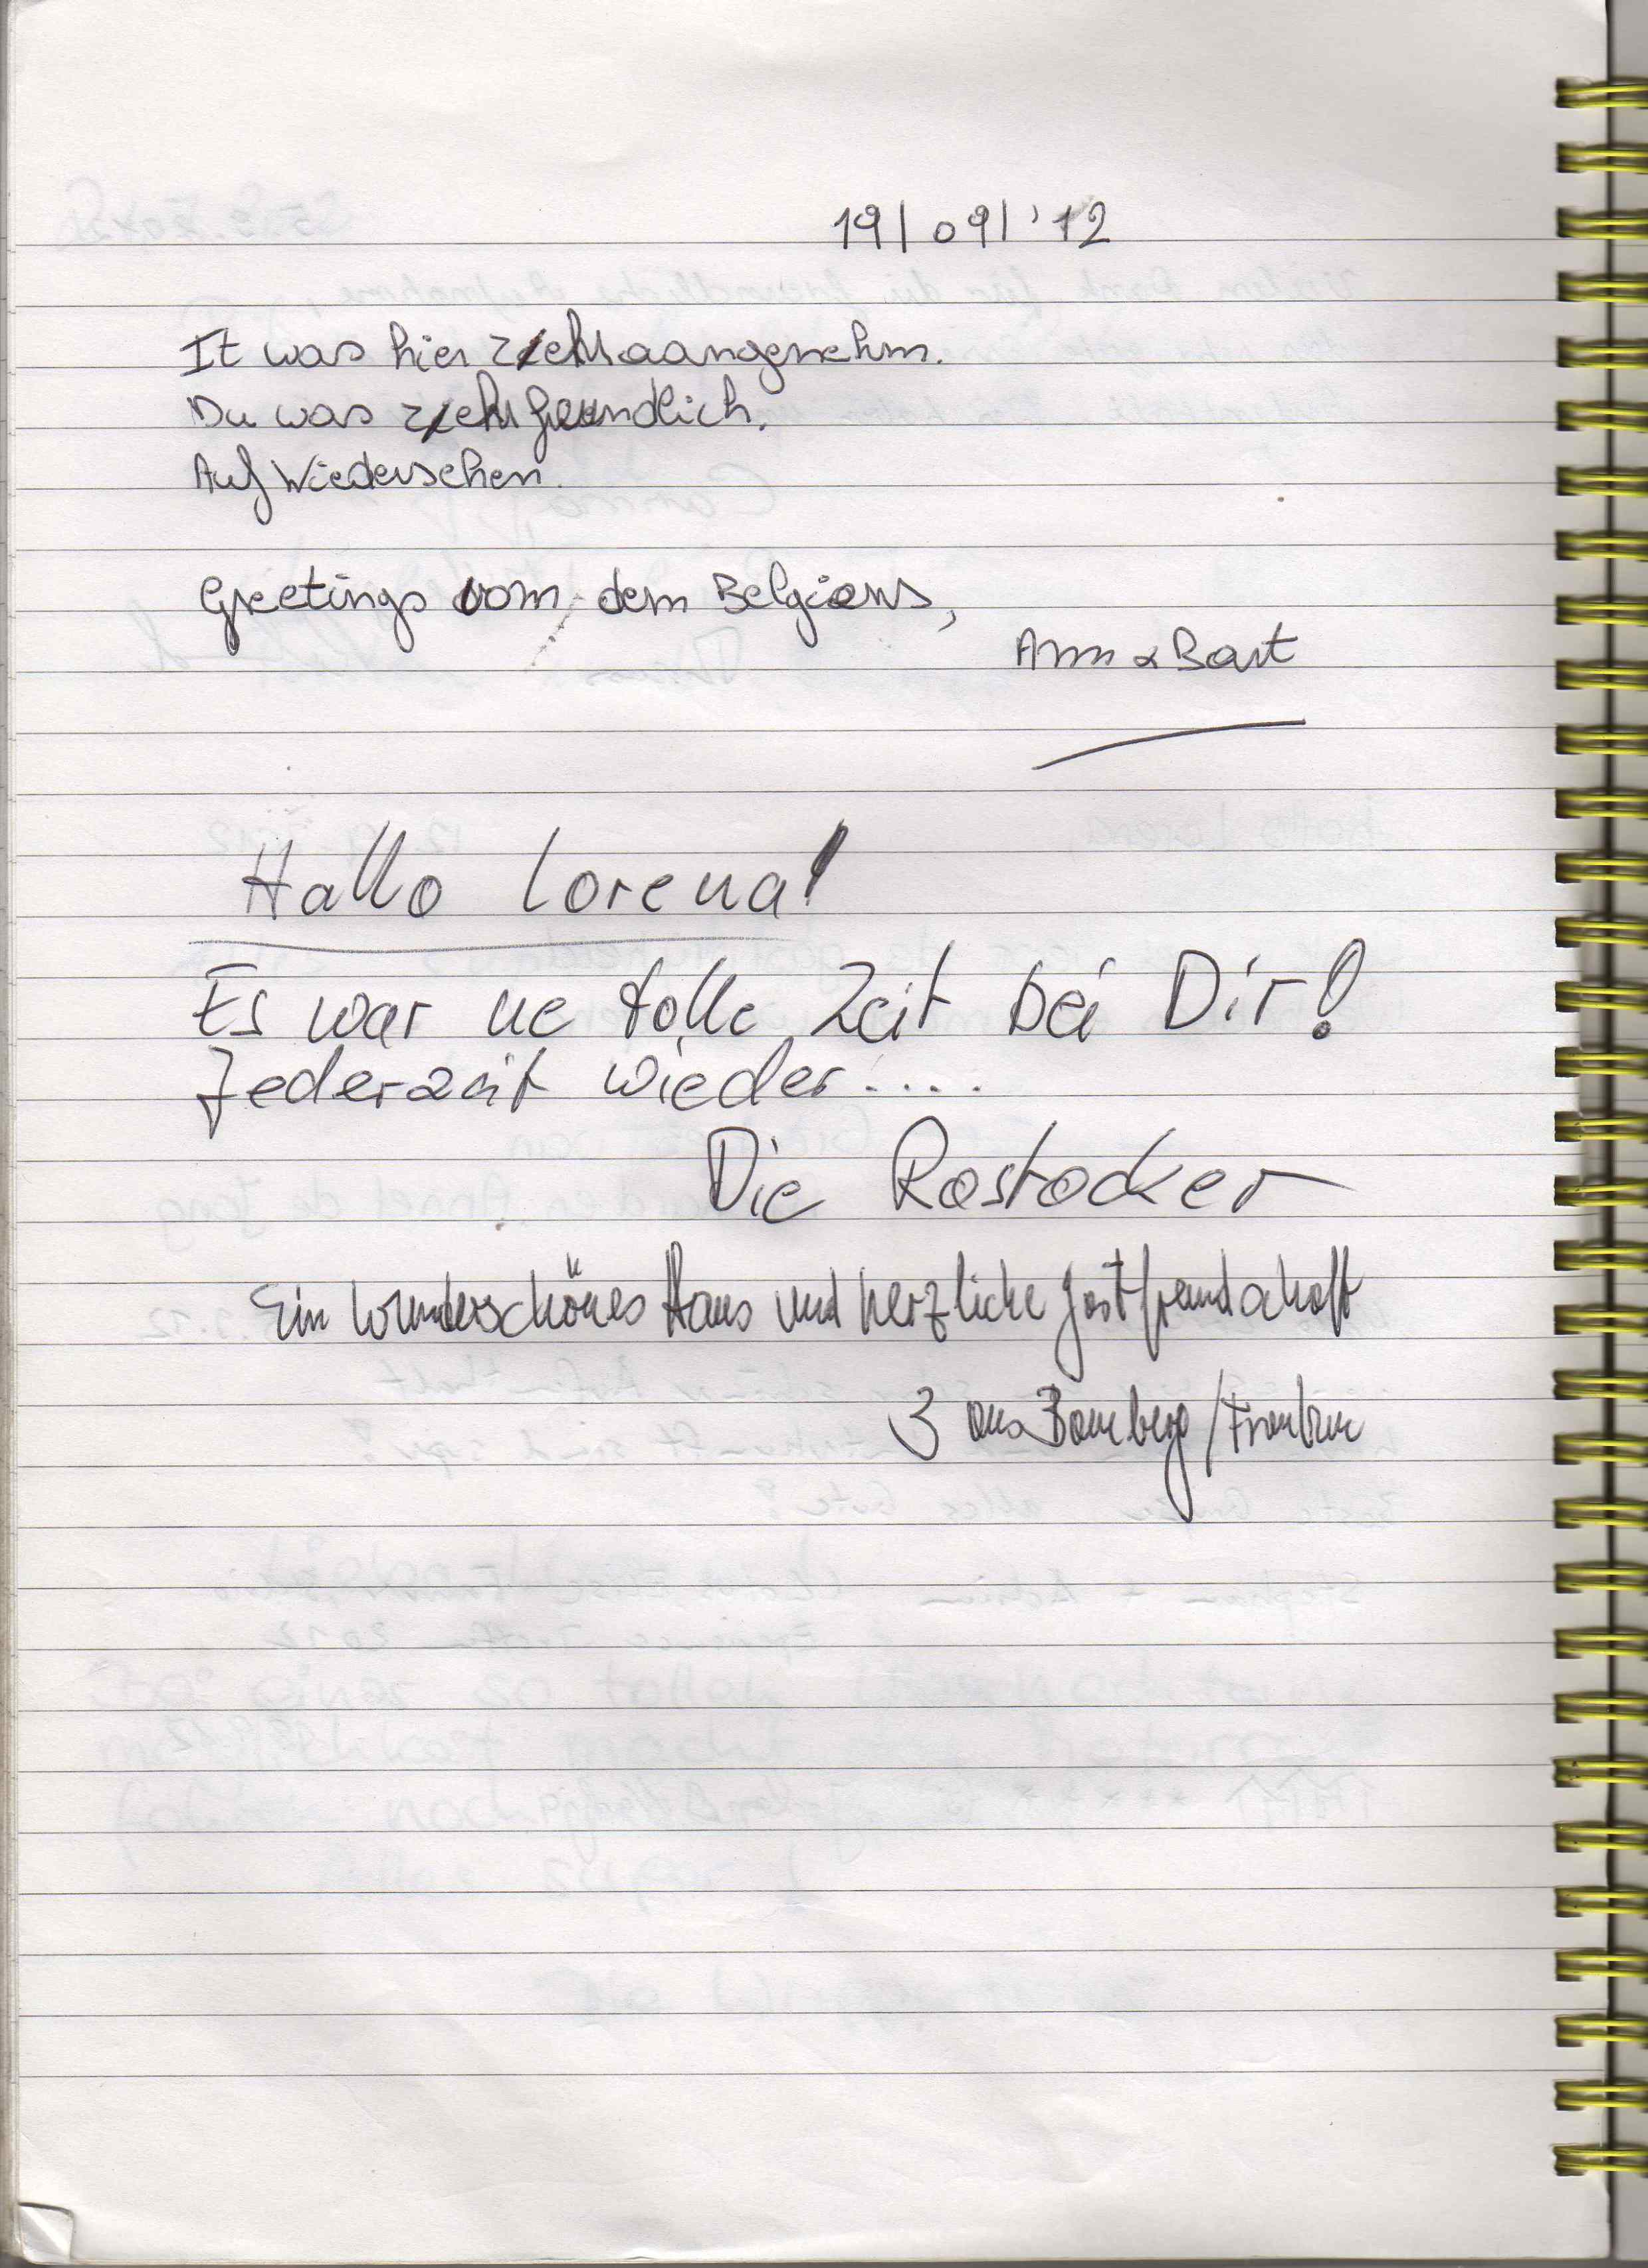 19/09/'12
It was hier zehr aangenehm.
Du was zehr freundlich.
Auf Wiedersehen.
Greetings vom dem Belgians,
Ann & Bart
Hallo Lorena!
Es war ne tolle Zeit bei Dir!
Jederzeit wieder.....
Die Rostocker
Ein wunderschönes Haus und herzliche Gastfreundschaft
3 aus Bamberg/Franken